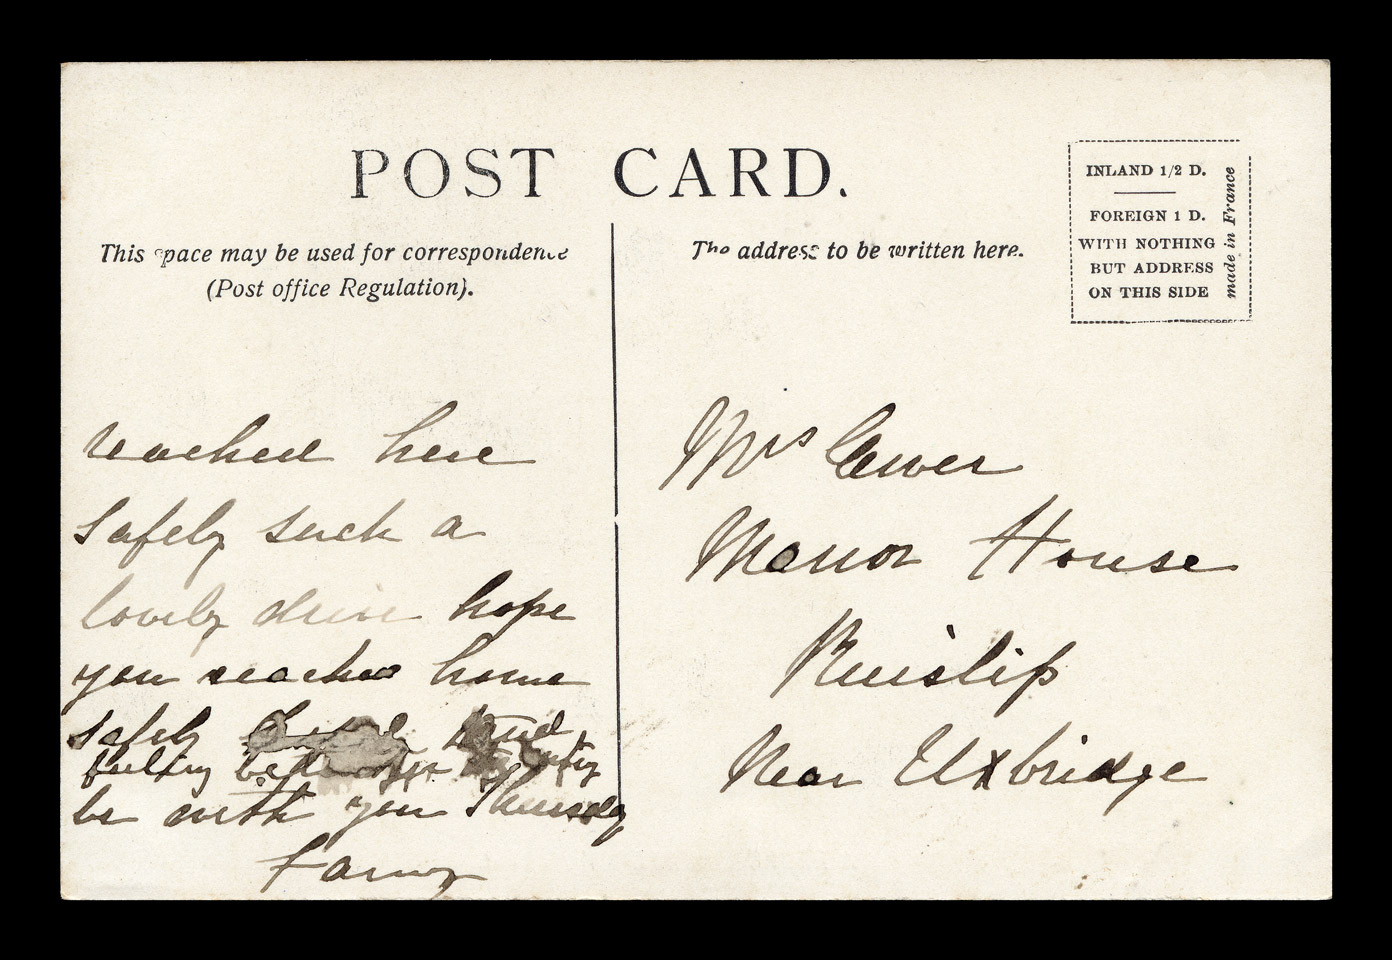 POST CARD.
This space may be used for correspondence
(Post office Regulation).
The address to be written here.
INLAND 1/2 D.
FOREIGN 1 D.
WITH NOTHING
BUT ADDRESS
ON THIS SIDE
made in France
reached here
safely such a
lovely drive hope
you reached home
safely and
feeling better
be with you Thursday
Fanny
Mrs Ewer
Manor House
Ruislip
Near Uxbridge